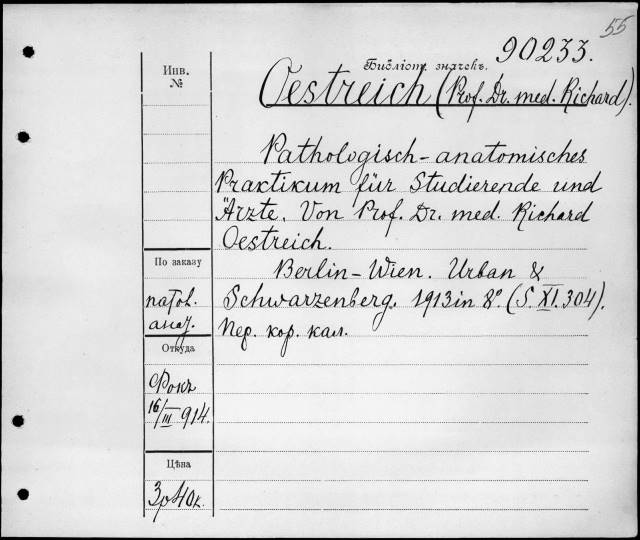 55
90233.
Библіот. значекъ.
Инв.
№
Oestreich (Prof. Dr. med. Richard).
Pathologisch-anatomisches
Praktikum für Studierende und
Ärzte. Von Prof. Dr. med. Richard
Oestreich.
Berlin-Wien. Urban &
Schwarzenberg. 1913 in 8°. (S. XI. 304).
Пер. кор. кал.
По заказу
патол.
анат.
Откуда
Фокъ
16/III 914.
Цѣна
3р 40к.